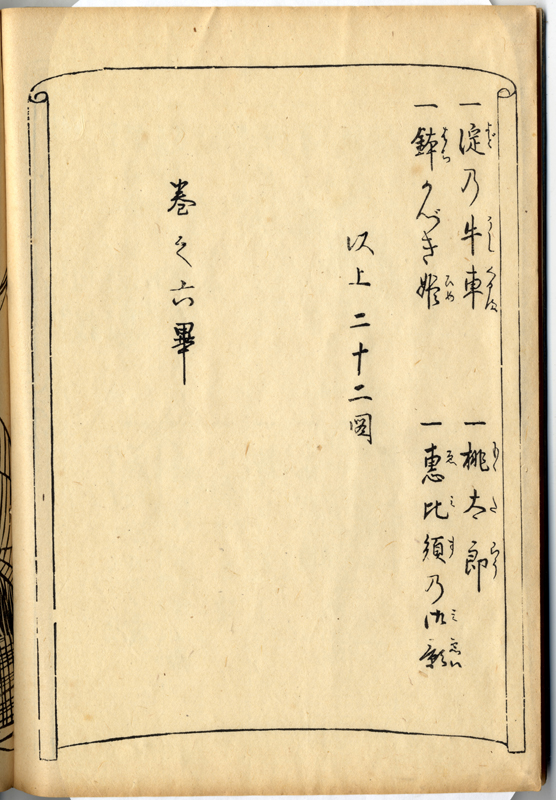 一淀乃牛車
一桃太郎
一鉢かづき姫
一恵比須乃御影
以上二十二図
巻之六畢